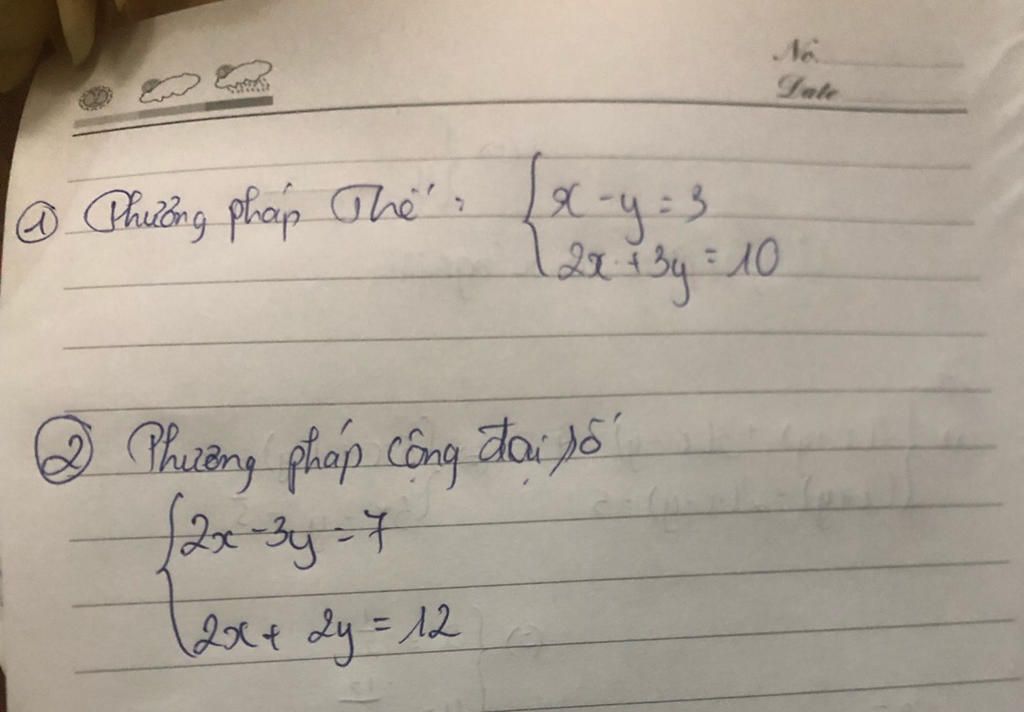 No.
Date
① Phương pháp Thế: { x - y = 3
2x + 3y = 10
② Phương pháp cộng đại số
{ 2x - 3y = 7
2x + 2y = 12